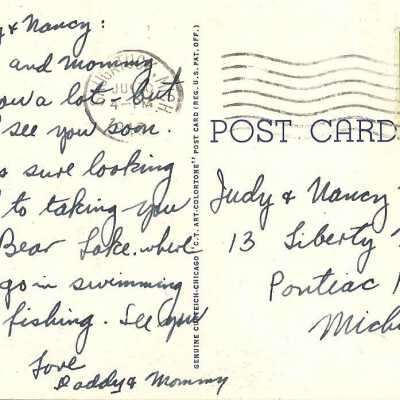 y & Nancy:
and mommy
you a lot - but
see you soon.
s sure looking
to taking you
Bear Lake, where
go in swimming
fishing. See you
Love
Daddy & Mommy
GENUINE CURTEICH-CHICAGO "C.T. ART-COLORTONE" POST CARD (REG. U.S. PAT. OFF.)
POST CARD
Judy & Nancy
13 Liberty
Pontiac
Mich